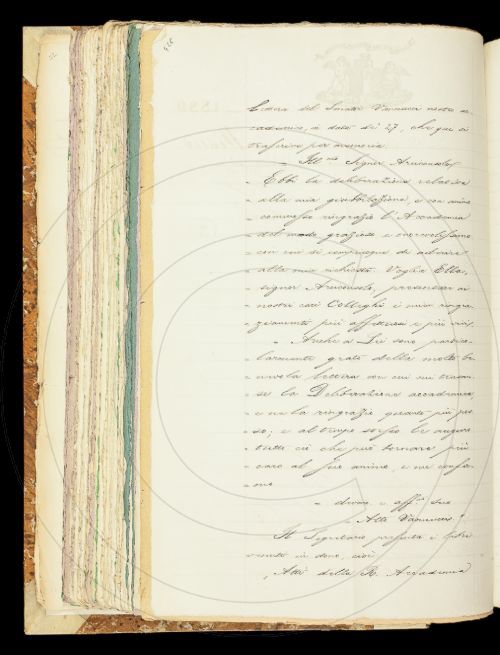 426
lettera del Senator Vannucci nostro ac-
cademico, in data di 27, che qui si
trascrive per memoria.
" Ill.mo Signor Arciconsolo
" Ebbi la deliberazione relativa
" alla mia giubbilazione, e con animo
" commosso ringrazio l'Accademia
" del modo grazioso e onorevolissimo
" con cui si compiacque di aderire
" alla mia richiesta. Voglia Ella,
" signor Arciconsolo, presentare ai
" nostri cari Colleghi i miei ringra-
" ziamenti più affettuosi e più vivi.
" Anche a Lei sono partico-
" larmente grato della molto be-
" nevola lettera con cui mi trasmi-
" se la Deliberazione accademica
" e ne la ringrazio quanto più pos-
" so; e al tempo stesso le auguro
" tutto ciò che può tornare più
" caro al suo animo, e mi confer-
" mo
" devmo. e aff.mo suo
" Atto Vannucci."
Il Segretario presenta i libri
venuti in dono, cioè:
" Atti della R. Accademia